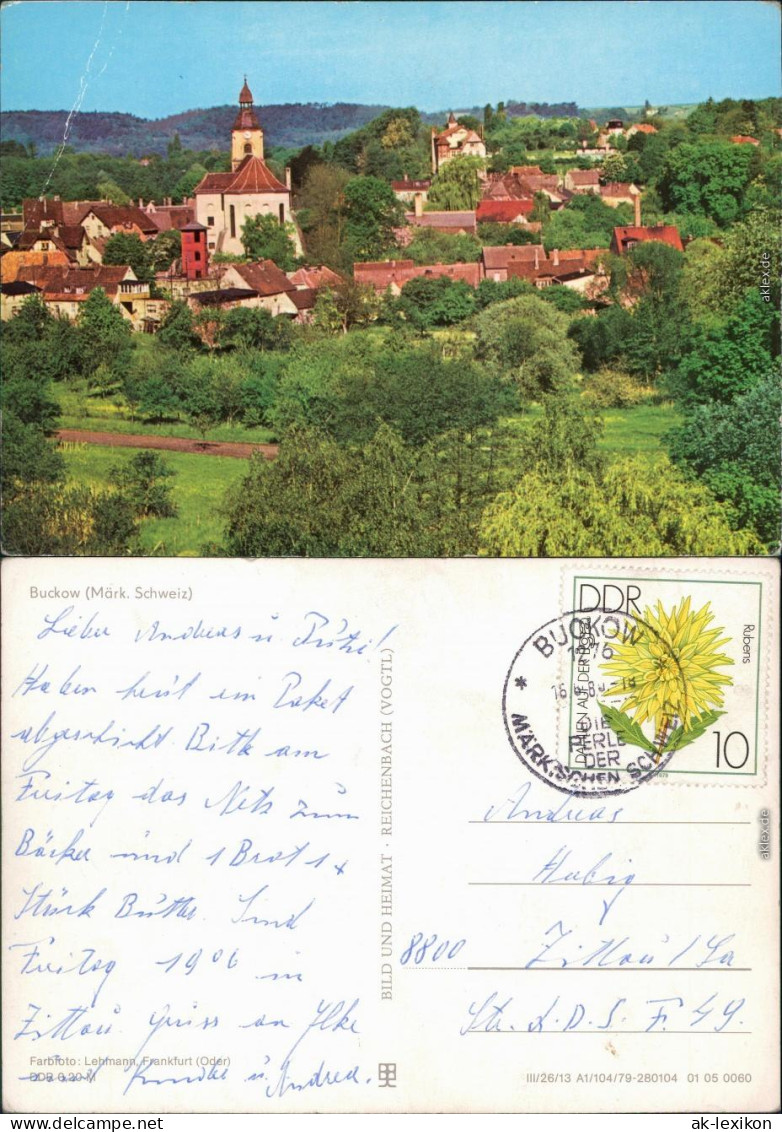 Buckow (Märk. Schweiz)
Lieber Andreas u.
Haben heut ein Paket
abgeschickt Bitte am
Freitag das Netz zum
Bäcker und 1 Brot 1 x
Stück Butter. Sind
Freitag 19⁰⁶ in
Zittau Gruss an
u. Andrea.
Farbfoto: Lehmann, Frankfurt (Oder)
DDR 0,20 M
BILD UND HEIMAT · REICHENBACH (VOGTL)
DDR
DAHLIEN AUF DER
Rubens
10
1979
BUCKOW
DIE
PERLE
DER
MÄRKISCHEN SCHWEIZ
Andreas
Habig
8800 Zittau / Sa
Str. d. D. S. F. 49.
III/26/13 A1/104/79-280104 01 05 0060
aklex.de
aklex.de
ak-lexikon